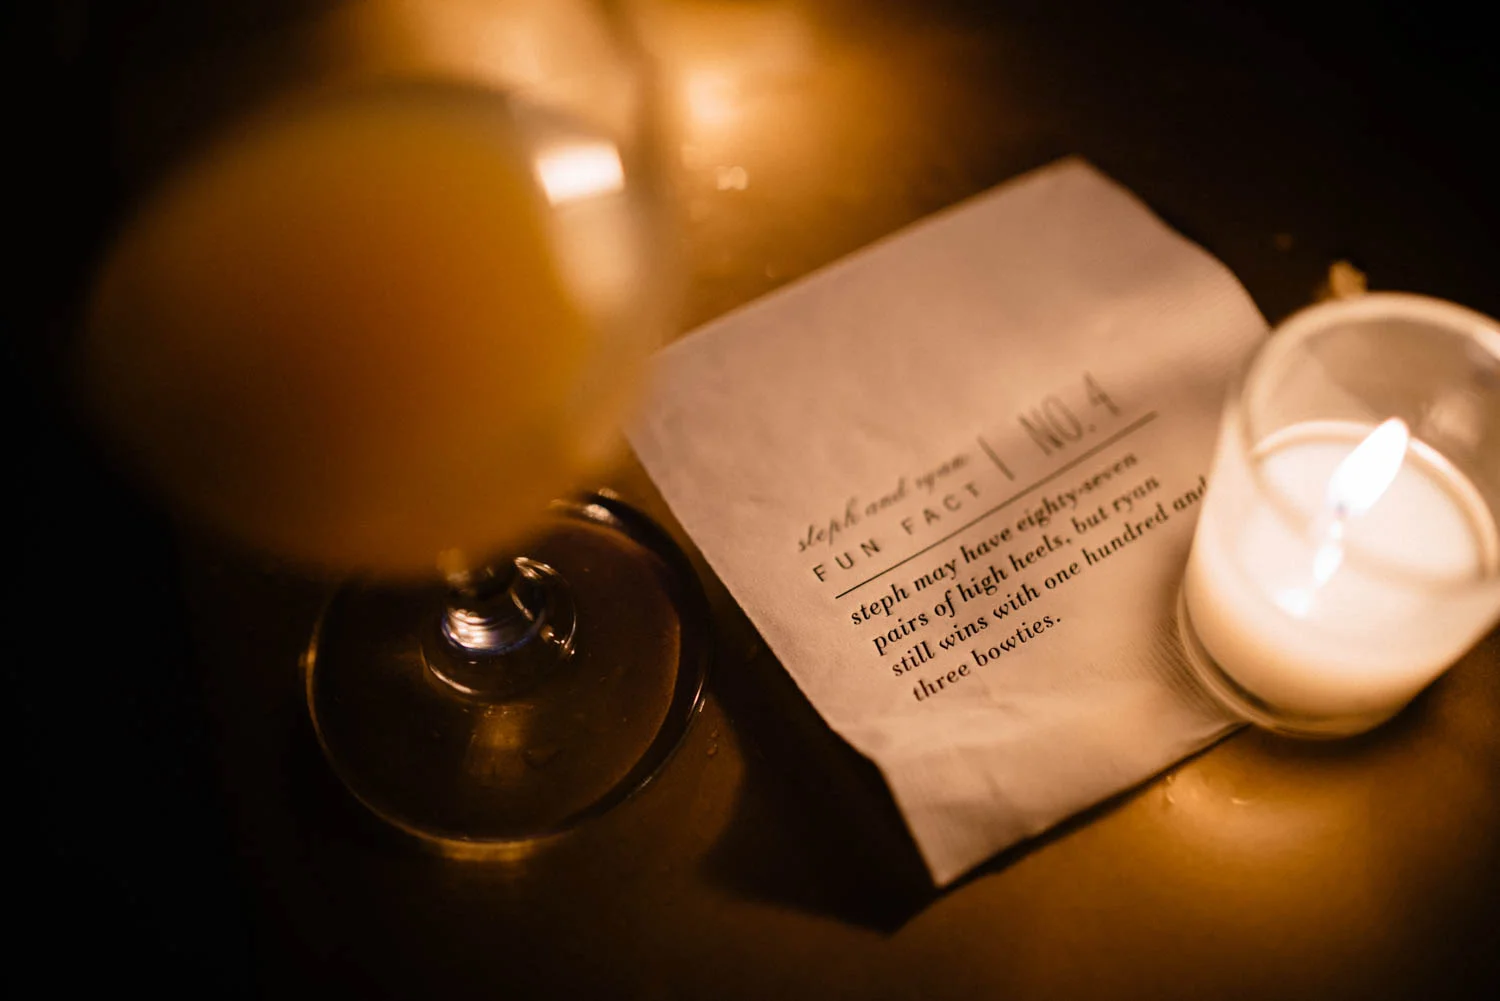 steph and ryan
FUN FACT | NO. 4
steph may have eighty-seven
pairs of high heels, but ryan
still wins with one hundred and
three bowties.